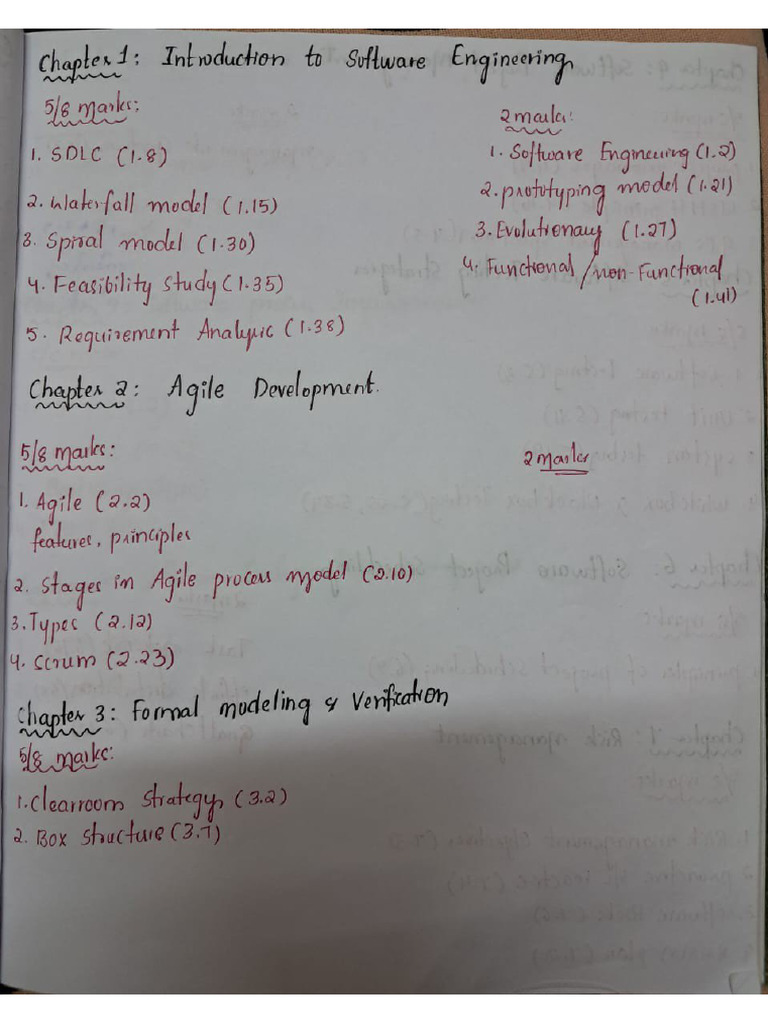 Chapter 1: Introduction to Software Engineering
5/8 marks:
1. SDLC (1.8)
2. Waterfall model (1.15)
3. Spiral model (1.30)
4. Feasibility Study (1.35)
5. Requirement Analysis (1.38)
2 marks:
1. Software Engineering (1.2)
2. prototyping model (1.21)
3. Evolutionary (1.27)
4. Functional / non-Functional
(1.41)
Chapter 2: Agile Development.
5/8 marks:
1. Agile (2.2)
features, principles
2. Stages in Agile process model (2.10)
3. Types (2.12)
4. Scrum (2.23)
2 marks
Chapter 3: Formal modeling & Verification
5/8 marks:
1. Clearroom Strategy, (3.2)
2. Box Structure (3.7)